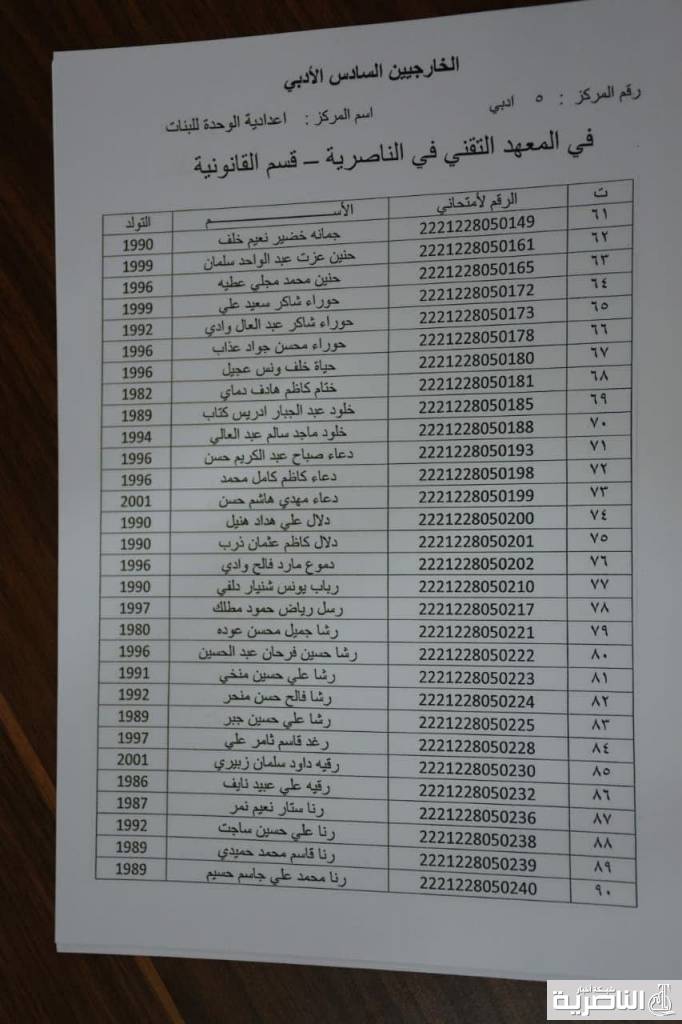 الخارجيين السادس الأدبي
رقم المركز : ٥ ادبي اسم المركز : اعدادية الوحدة للبنات
في المعهد التقني في الناصرية – قسم القانونية
ت الرقم لأمتحاني الأســـــم التولد
٦١ 2221228050149 جمانه خضير نعيم خلف 1990
٦٢ 2221228050161 حنين عزت عبد الواحد سلمان 1999
٦٣ 2221228050165 حنين محمد مجلي عطيه 1996
٦٤ 2221228050172 حوراء شاكر سعيد علي 1999
٦٥ 2221228050173 حوراء شاكر عبد العال وادي 1992
٦٦ 2221228050178 حوراء محسن جواد عذاب 1996
٦٧ 2221228050180 حياة خلف ونس عجيل 1996
٦٨ 2221228050181 ختام كاظم هادف دماي 1982
٦٩ 2221228050185 خلود عبد الجبار ادريس كتاب 1989
٧٠ 2221228050188 خلود ماجد سالم عبد العالي 1994
٧١ 2221228050193 دعاء صباح عبد الكريم حسن 1996
٧٢ 2221228050198 دعاء كاظم كامل محمد 1996
٧٣ 2221228050199 دعاء مهدي هاشم حسن 2001
٧٤ 2221228050200 دلال علي هداد هنيل 1990
٧٥ 2221228050201 دلال كاظم عثمان ذرب 1990
٧٦ 2221228050202 دموع مارد فالح وادي 1996
٧٧ 2221228050210 رباب يونس شنيار دلفي 1990
٧٨ 2221228050217 رسل رياض حمود مطلك 1997
٧٩ 2221228050221 رشا جميل محسن عوده 1980
٨٠ 2221228050222 رشا حسين فرحان عبد الحسين 1996
٨١ 2221228050223 رشا علي حسين منخي 1991
٨٢ 2221228050224 رشا فالح حسن منحر 1992
٨٣ 2221228050225 رشا علي حسين جبر 1989
٨٤ 2221228050228 رغد قاسم ثامر علي 1997
٨٥ 2221228050230 رقيه داود سلمان زبيري 2001
٨٦ 2221228050232 رقيه علي عبيد نايف 1986
٨٧ 2221228050236 رنا ستار نعيم نمر 1987
٨٨ 2221228050238 رنا علي حسين ساجت 1992
٨٩ 2221228050239 رنا قاسم محمد حميدي 1989
٩٠ 2221228050240 رنا محمد علي جاسم حسيم 1989
شبكة أخبار
الناصرية